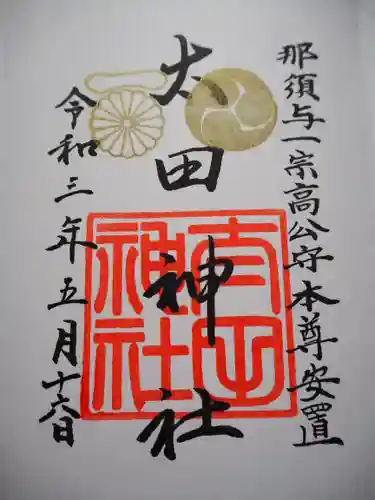 那須与一宗高公守本尊安置
大田神社
令和三年五月十六日
大田
神社